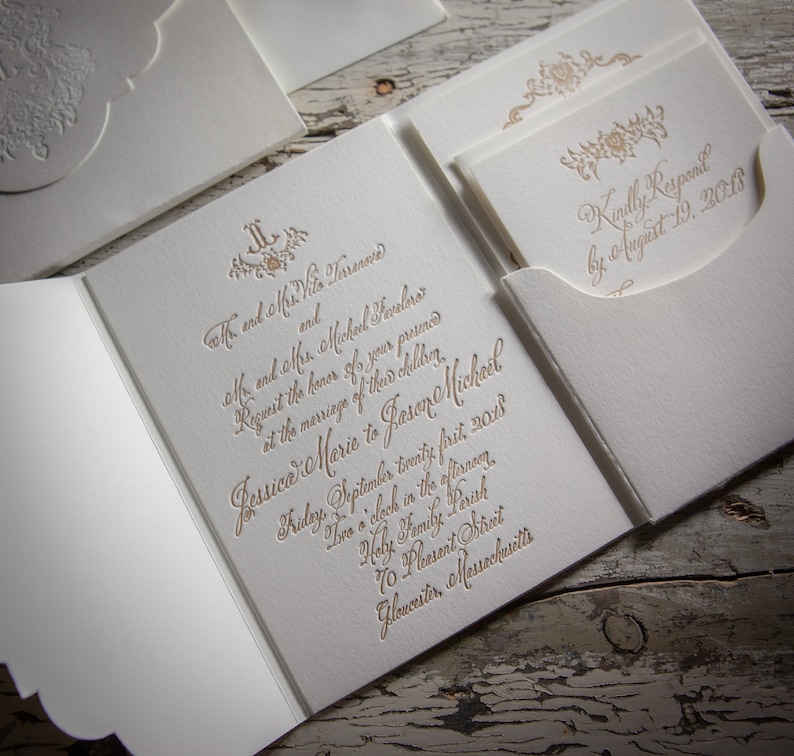 JJ
Mr. and Mrs. Vito Terranova
and
Mr. and Mrs. Michael Favaloro
Request the honor of your presence
at the marriage of their children
Jessica Marie to Jason Michael
Friday, September twenty first, 2018
Two o'clock in the afternoon
Holy Family Parish
70 Pleasant Street
Gloucester, Massachusetts
Kindly Respond
by August 19, 2018